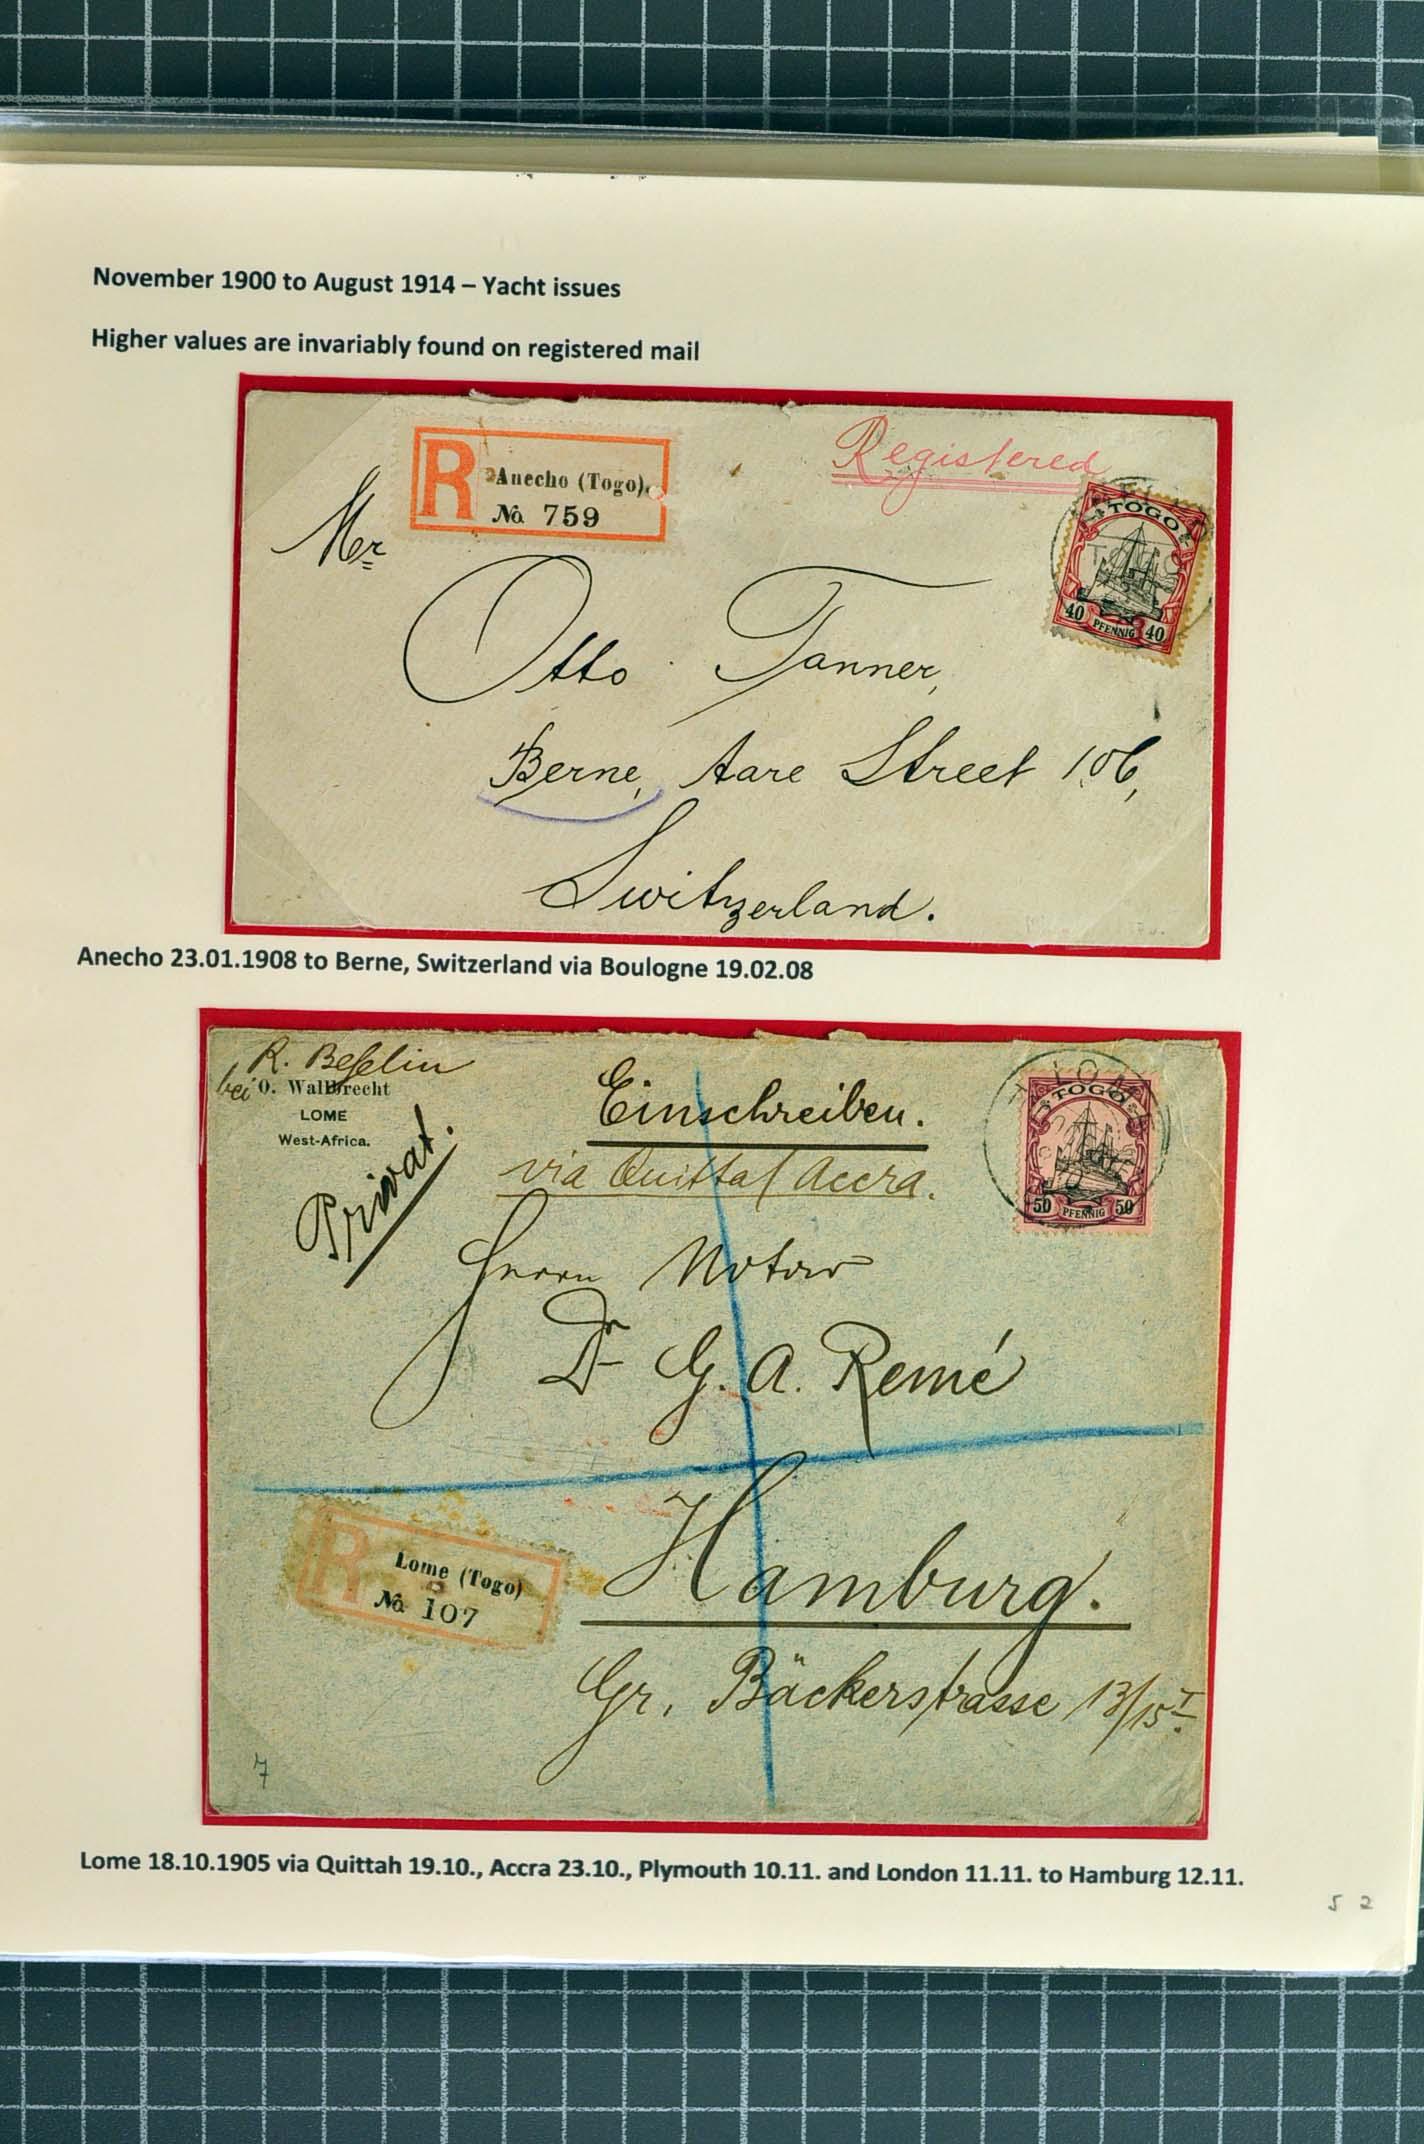 November 1900 to August 1914 – Yacht issues
Higher values are invariably found on registered mail
R
Anecho (Togo).
No 759
Registered
TOGO
40 PFENNIG 40
Mr
Otto Tanner,
Berne, Aare Street 106,
Switzerland.
Anecho 23.01.1908 to Berne, Switzerland via Boulogne 19.02.08
R. Beßelin
bei O. Wallbrecht
LOME
West-Africa.
Privat.
Einschreiben.
via Quitta / Accra.
LOME
TOGO
50 PFENNIG 50
Herrn Notar
Dr G. A. Remé
Hamburg.
Gr. Bäckerstrasse 13/15 I.
R
Lome (Togo)
No 107
7
Lome 18.10.1905 via Quittah 19.10., Accra 23.10., Plymouth 10.11. and London 11.11. to Hamburg 12.11.
5 2